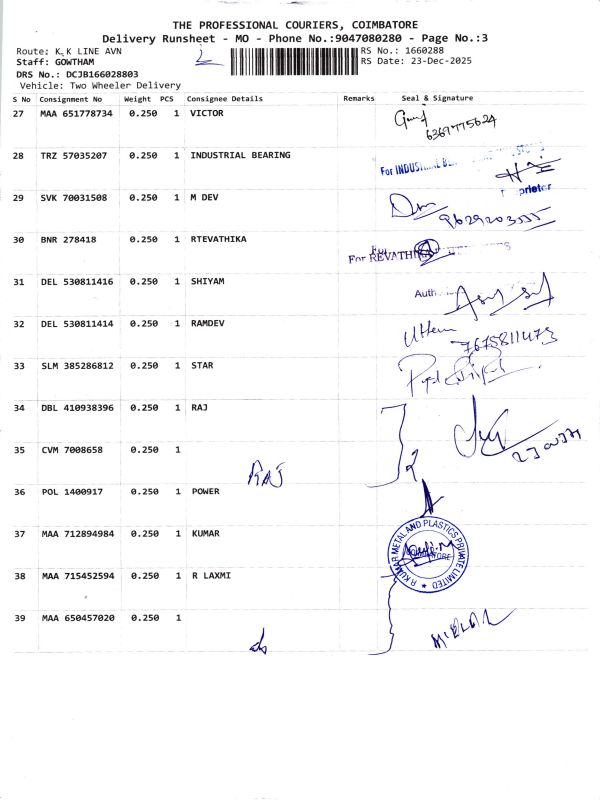 THE PROFESSIONAL COURIERS, COIMBATORE
Delivery Runsheet - MO - Phone No.:9047080280 - Page No.:3
Route: K.K LINE AVN
RS No.: 1660288
Staff: GOWTHAM
RS Date: 23-Dec-2025
DRS No.: DCJB166028803
Vehicle: Two Wheeler Delivery
S No Consignment No Weight PCS Consignee Details Remarks Seal & Signature
27 MAA 651778734 0.250 1 VICTOR
6369775624
28 TRZ 57035207 0.250 1 INDUSTRIAL BEARING
For INDUSTRIAL
prietor
29 SVK 70031508 0.250 1 M DEV
9629203555
30 BNR 278418 0.250 1 RTEVATHIKA
For
For REVATHI
31 DEL 530811416 0.250 1 SHIYAM
Auth
32 DEL 530811414 0.250 1 RAMDEV
Uttam
7675811473
33 SLM 385286812 0.250 1 STAR
34 DBL 410938396 0.250 1 RAJ
35 CVM 7008658 0.250 1
RAJ
36 POL 1400917 0.250 1 POWER
37 MAA 712894984 0.250 1 KUMAR
R KUMAR METAL AND PLASTICS PRIVATE LIMITED
38 MAA 715452594 0.250 1 R LAXMI
39 MAA 650457020 0.250 1